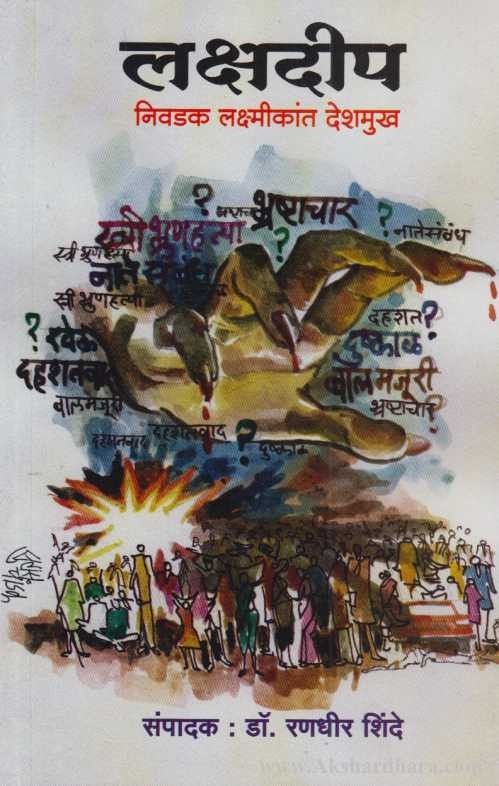 लक्षदीप
निवडक लक्ष्मीकांत देशमुख
? भ्रष्टाचार ?
स्त्री भ्रूणहत्या ? नातेसंबंध
स्त्री भ्रूणहत्या
नाते संबंध
स्त्री भ्रूणहत्या
दहशत ?
? खेळ दुष्काळ
दहशतवाद बालमजूरी
बालमजूरी भ्रष्टाचार ?
दहशतवाद दहशतवाद ? दुष्काळ
संपादक : डॉ. रणधीर शिंदे
www.Akshardhara.com